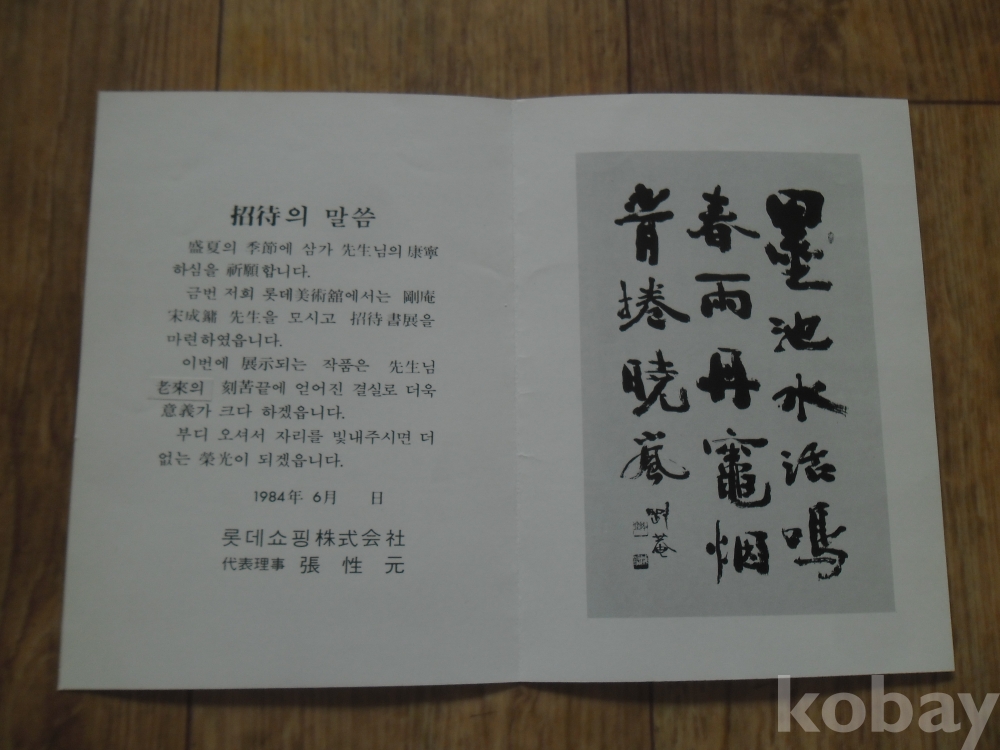 招待의 말씀
盛夏의 季節에 삼가 先生님의 康寧
하심을 祈願합니다.
금번 저희 롯데美術舘에서는 剛庵
宋成鏞 先生을 모시고 招待書展을
마련하였읍니다.
이번에 展示되는 작품은 先生님
老來의 刻苦끝에 얻어진 결실로 더욱
意義가 크다 하겠읍니다.
부디 오셔서 자리를 빛내주시면 더
없는 榮光이 되겠읍니다.
1984年 6月 日
롯데쇼핑株式会社
代表理事 張 性 元
墨池水活鳴
春雨丹竈烟
捲曉嵐
剛菴
kobay